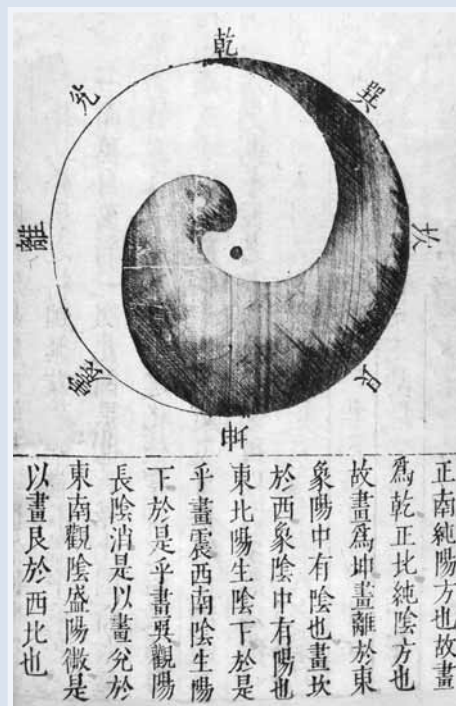 乾
兌
巽
離
坎
震
艮
坤
正南純陽方也故畫
爲乾正比純陰方也
故畫爲坤畫離於東
象陽中有陰也畫坎
於西象陰中有陽也
東北陽生陰下於是
乎畫震西南陰生陽
下於是乎畫巽觀陽
長陰消是以畫兌於
東南觀陰盛陽微是
以畫艮於西比也